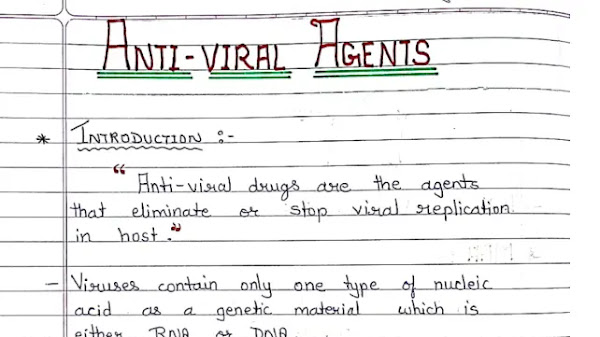 ANTI-VIRAL AGENTS
* INTRODUCTION :-
" Anti-viral drugs are the agents
that eliminate or stop viral replication
in host."
- Viruses contain only one type of nucleic
acid as a genetic material which is
either RNA or DNA